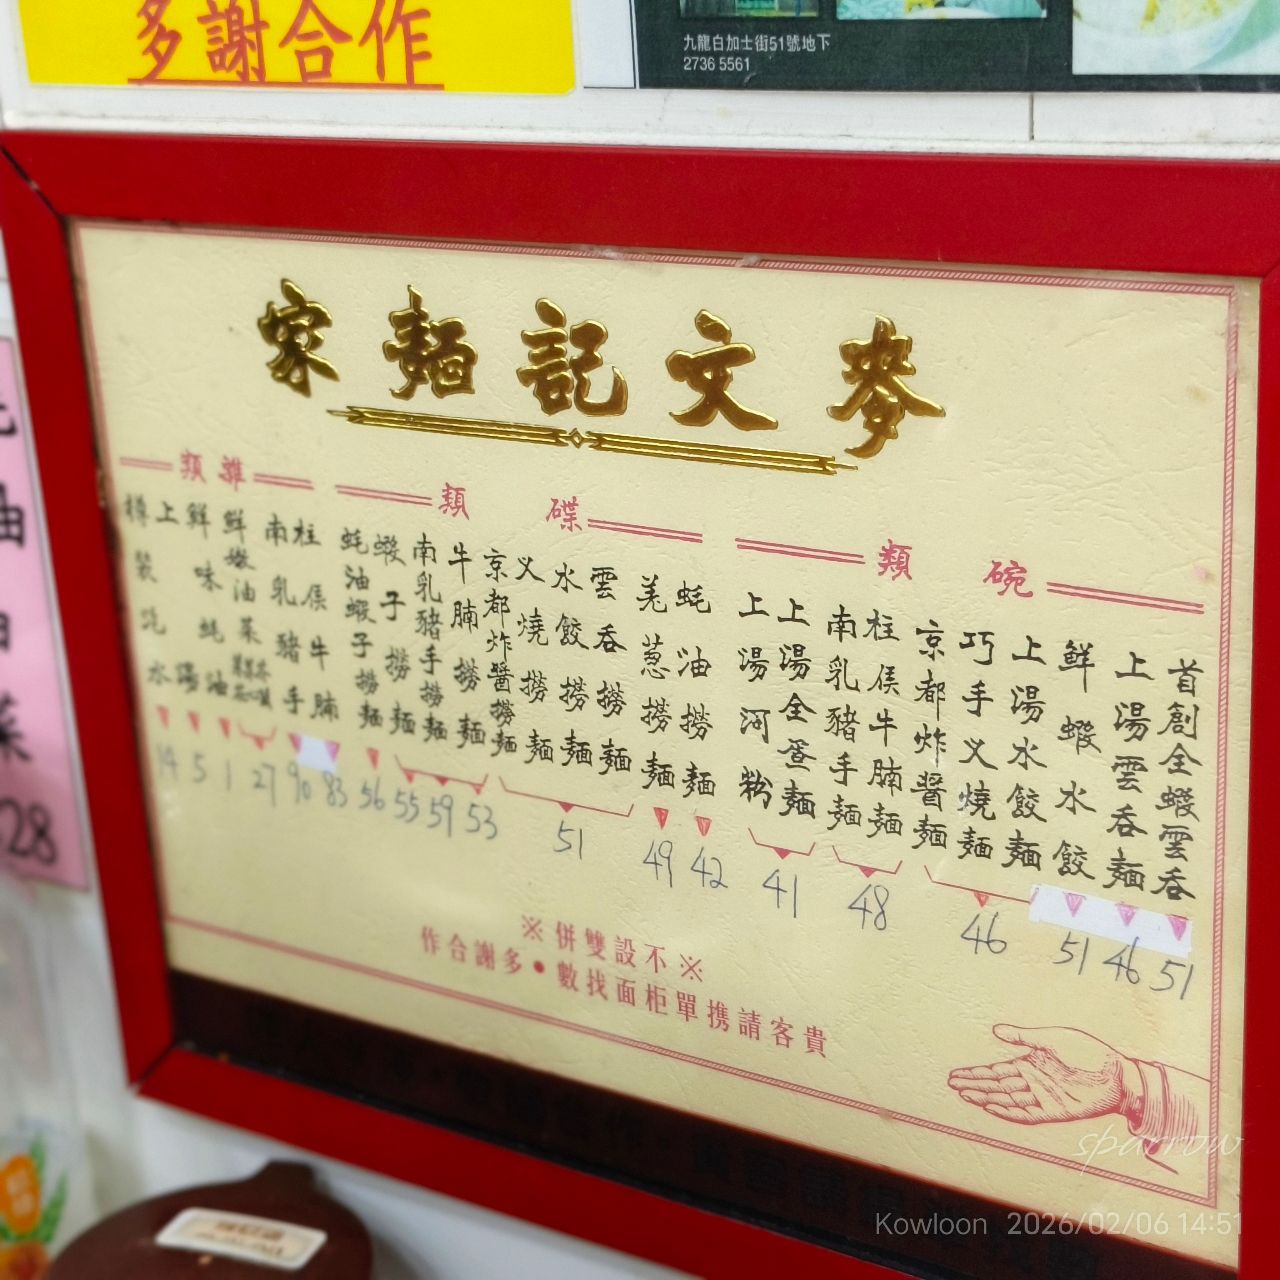 多謝合作
九龍白加士街51號地下
2736 5561
麥文記麵家
碗類
首創全蝦雲吞
上湯雲吞麵
鮮蝦水餃
上湯水餃麵
巧手义燒麵
京都炸醬麵
柱侯牛腩麵
南乳豬手麵
上湯全蛋麵
上湯河粉
51
46
51
46
48
41
碟類
蚝油撈麵
羌葱撈麵
雲吞撈麵
水餃撈麵
义燒撈麵
京都炸醬撈麵
牛腩撈麵
南乳豬手撈麵
蝦子撈麵
蚝油蝦子撈麵
42
49
51
53
59
55
56
雜類
柱侯牛腩
南乳豬手
鮮嫩油菜
鮮味蚝油
上湯
樽裝汽水
83
90
27
1
5
14
※不設雙併※
貴客請携單柜面找數•多謝合作
油
菜
28
sparrow
Kowloon 2026/02/06 14:51